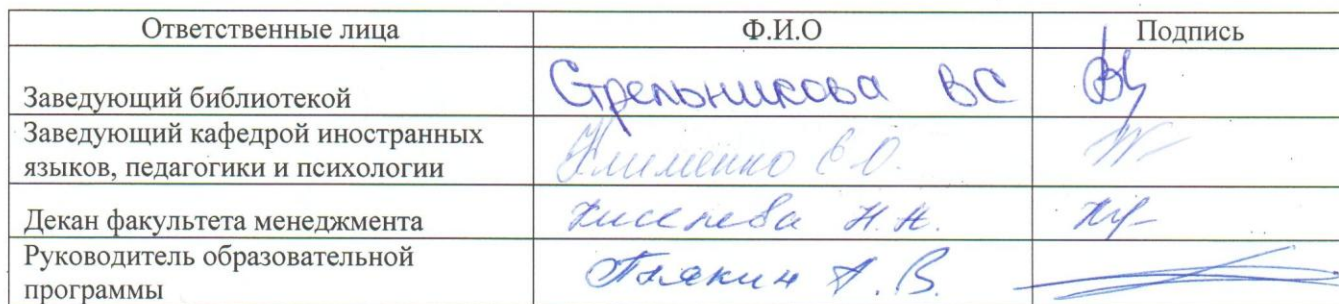 Ответственные лица Ф.И.О Подпись
Заведующий библиотекой Стрельникова ВС
Заведующий кафедрой иностранных
языков, педагогики и психологии Клименко Е О.
Декан факультета менеджмента Киселева Н.Н.
Руководитель образовательной
программы А.В.